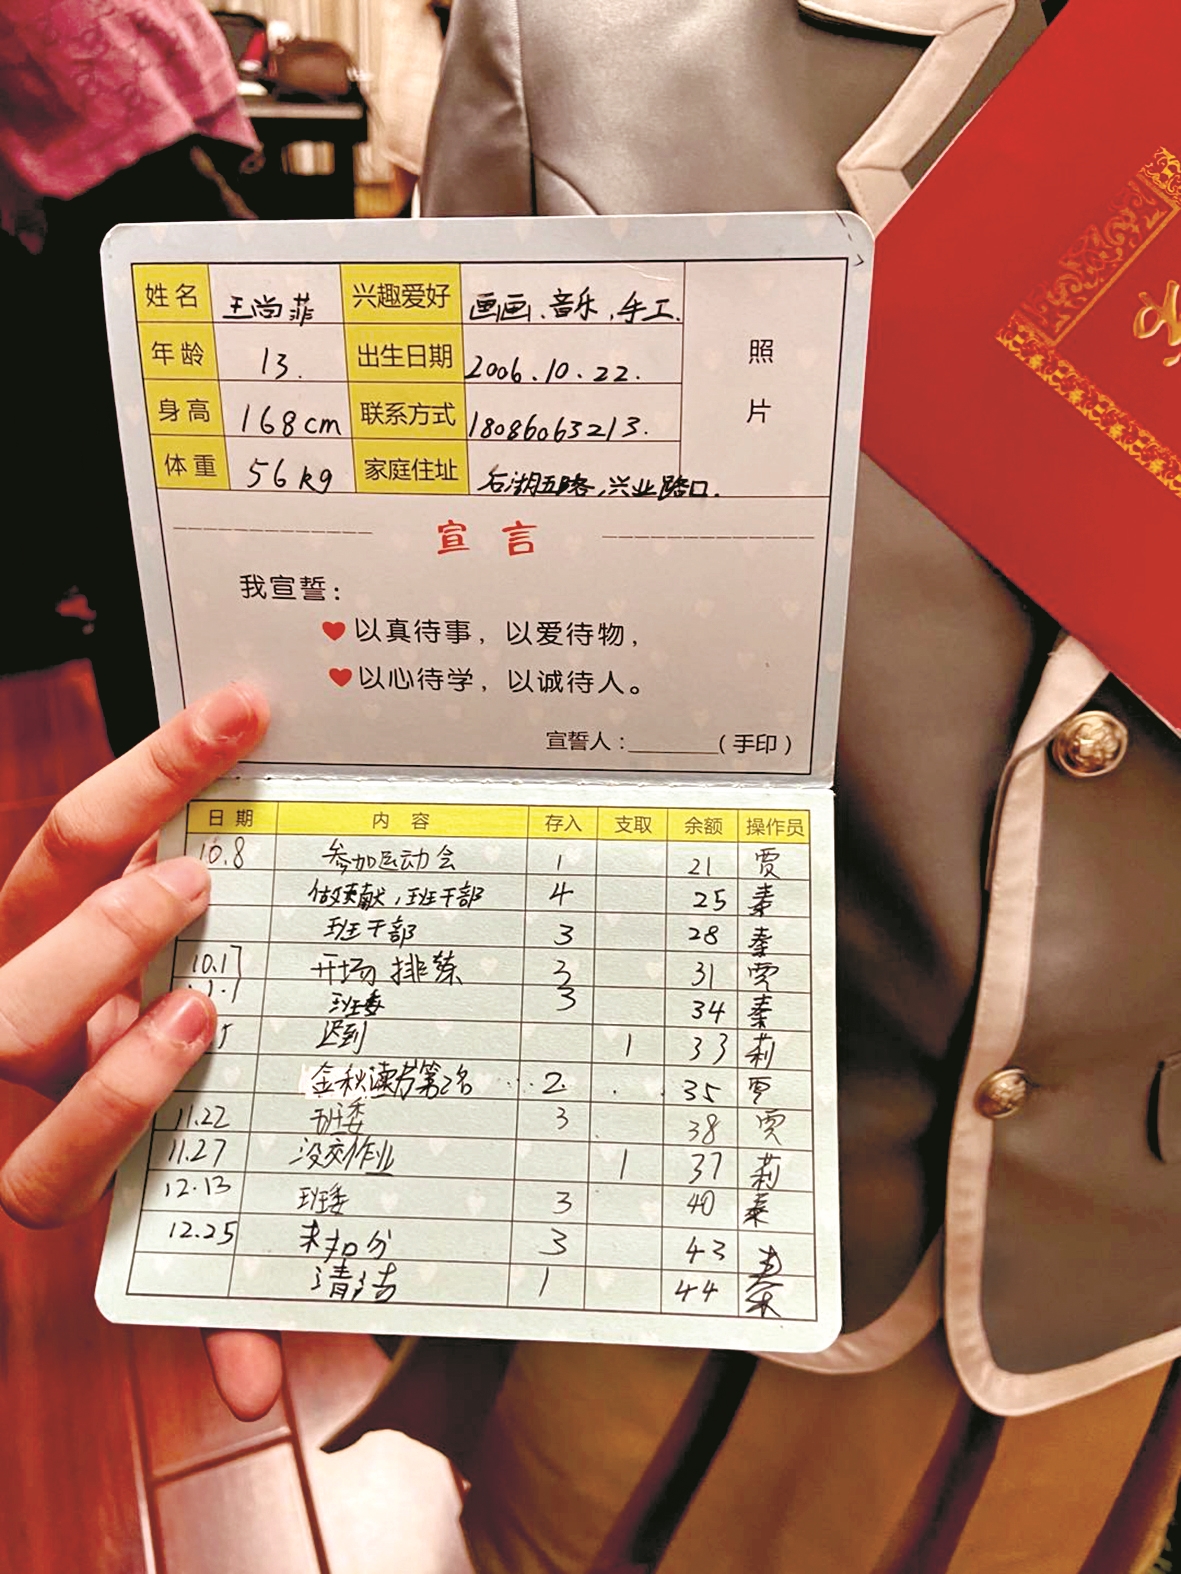 姓名 王尚菲 兴趣爱好 画画、音乐、手工.
年龄 13. 出生日期 2006.10.22.
身高 168cm 联系方式 18086063213.
体重 56kg 家庭住址 石湖五路,兴业路口.
照
片
宣言
我宣誓：
以真待事，以爱待物，
以心待学，以诚待人。
宣誓人：________（手印）
日期 内容 存入 支取 余额 操作员
10.8 参加运动会 1 21 贾
做贡献,班干部 4 25 秦
班干部 3 28 秦
10.17 开场排练 3 31 贾
班委 3 34 秦
迟到 1 33 莉
金秋读书第2名 2 35 罗
11.22 班委 3 38 贾
11.27 没交作业 1 37 莉
12.13 班委 3 40 秦
12.25 未扣分 3 43 秦
清洁 1 44 秦